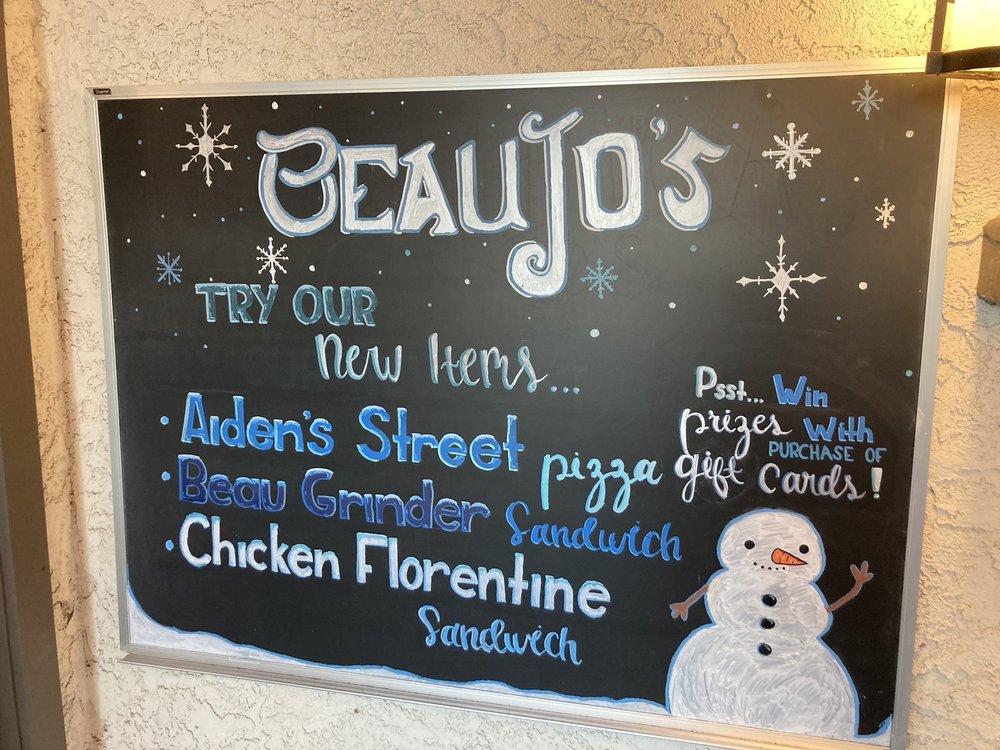 BEAUJO'S
TRY OUR
New Items...
• Aiden's Street pizza
• Beau Grinder Sandwich
• Chicken Florentine
Sandwich
Psst... Win
prizes With
PURCHASE OF
gift Cards!